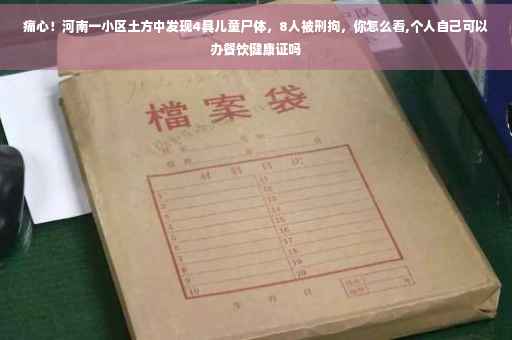 痛心！河南一小区土方中发现4具儿童尸体，8人被刑拘，你怎么看,个人自己可以
办餐饮健康证吗
檔案袋
材料目次
1
2
3
4
5
6
7
8
9
10
11
12
13
14
15
16
17
18
19
20
年 月 日